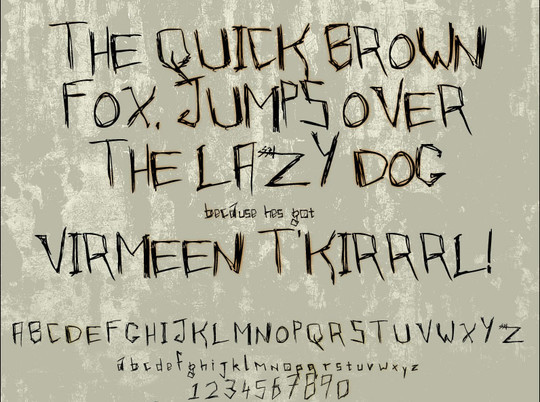 THE QUICK BROWN
FOX. JUMPS OVER
THE LAZY DOG
because hes got
VIRMEEN T'KIRRRL!
ABCDEFGHIJKLMNOPQRSTUVWXYZ
abcdefghijklmnopqrstuvwxyz
1234567890